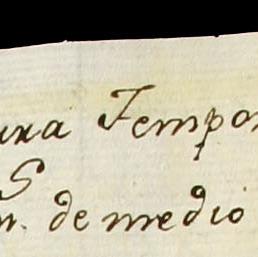 ura Tempor
S
n. de medio